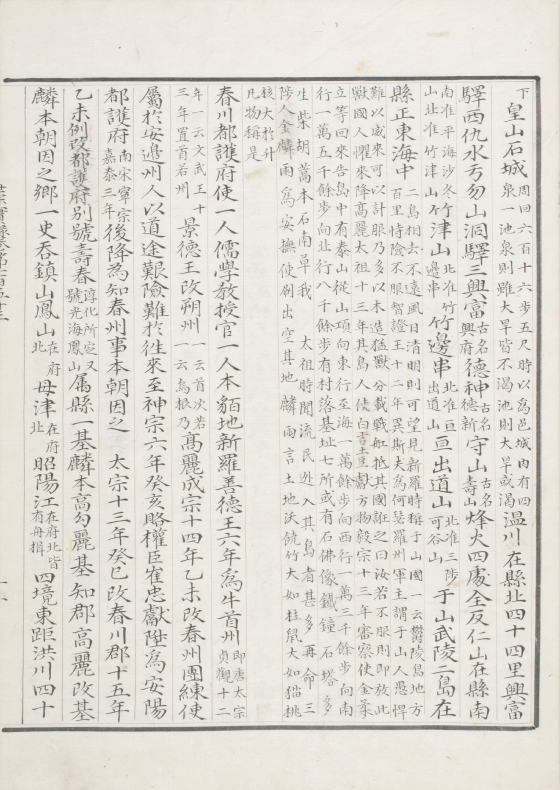 下皇山石城周回六百十六步五尺時以爲邑城內有四泉一池泉則雖大旱皆不渴池則大旱或渴溫川在縣北四十四里興富
驛西仇水亏勿山洞驛三興富古名興府德神古名德新守山古名壽山烽火四處全反仁山在縣南
南准平海沙冬山北准竹津山竹津山北准竹邊串竹邊串北准亘出道山亘出道山北准三陟可谷山于山武陵二島在
縣正東海中二島相去不遠風日清明則可望見新羅時稱于山國一云鬱陵島地方
百里恃險不服智證王十二年異斯夫爲何瑟羅州軍主謂于山人愚悍
難以威來可以計服乃多以木造猛獸分載戰舡抵其國誑之曰汝若不服則即放此
獸國人懼來降高麗太祖十三年其島人使白吉土豆獻方物毅宗十三年審察使金柔
立等回來告島中有泰山從山頂向東行至海一萬餘步向西行一萬三千餘步向南
行一萬五千餘步向北行八千餘步有村落基址七所或有石佛像鐵鐘石塔多
生柴胡蒿本石南草我 太祖時聞流民逃入其島者甚多再命三
陟人金麟雨爲安撫使刷出空其地麟雨言土地沃饒竹大如柱鼠大如猫桃
核大於升
凡物稱是
春川都護府使一人儒學教授官一人本貊地新羅善德王六年爲牛首州即唐太宗貞觀十二
年一云文武王十三年置首若州景德王改朔州一云首次若一云烏根乃高麗成宗十四年乙未改春州團練使
屬於安邊州人以道途艱險難於往來至神宗六年癸亥賂權臣崔忠獻陞爲安陽
都護府南宋寧宗嘉泰三年後降爲知春州事本朝因之 太宗十三年癸巳改春川郡十五年
乙未例改都護府別號壽春淳化所定又號光海鳳山屬縣一基麟本高勾麗基知郡高麗改基
麟本朝因之鄕一史吞鎭山鳳山在府北母津在府北昭陽江在府北皆有舟楫四境東距洪川四十